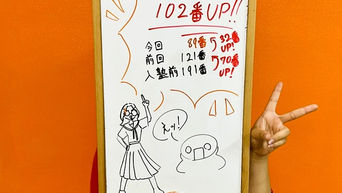 102番UP!!
今回 89番
32番UP!
前回 121番
70番UP!
入塾前 191番
えッ!